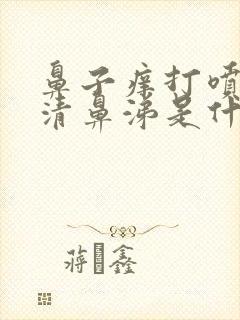 鼻子痒打喷
清鼻涕是什
蒋鑫